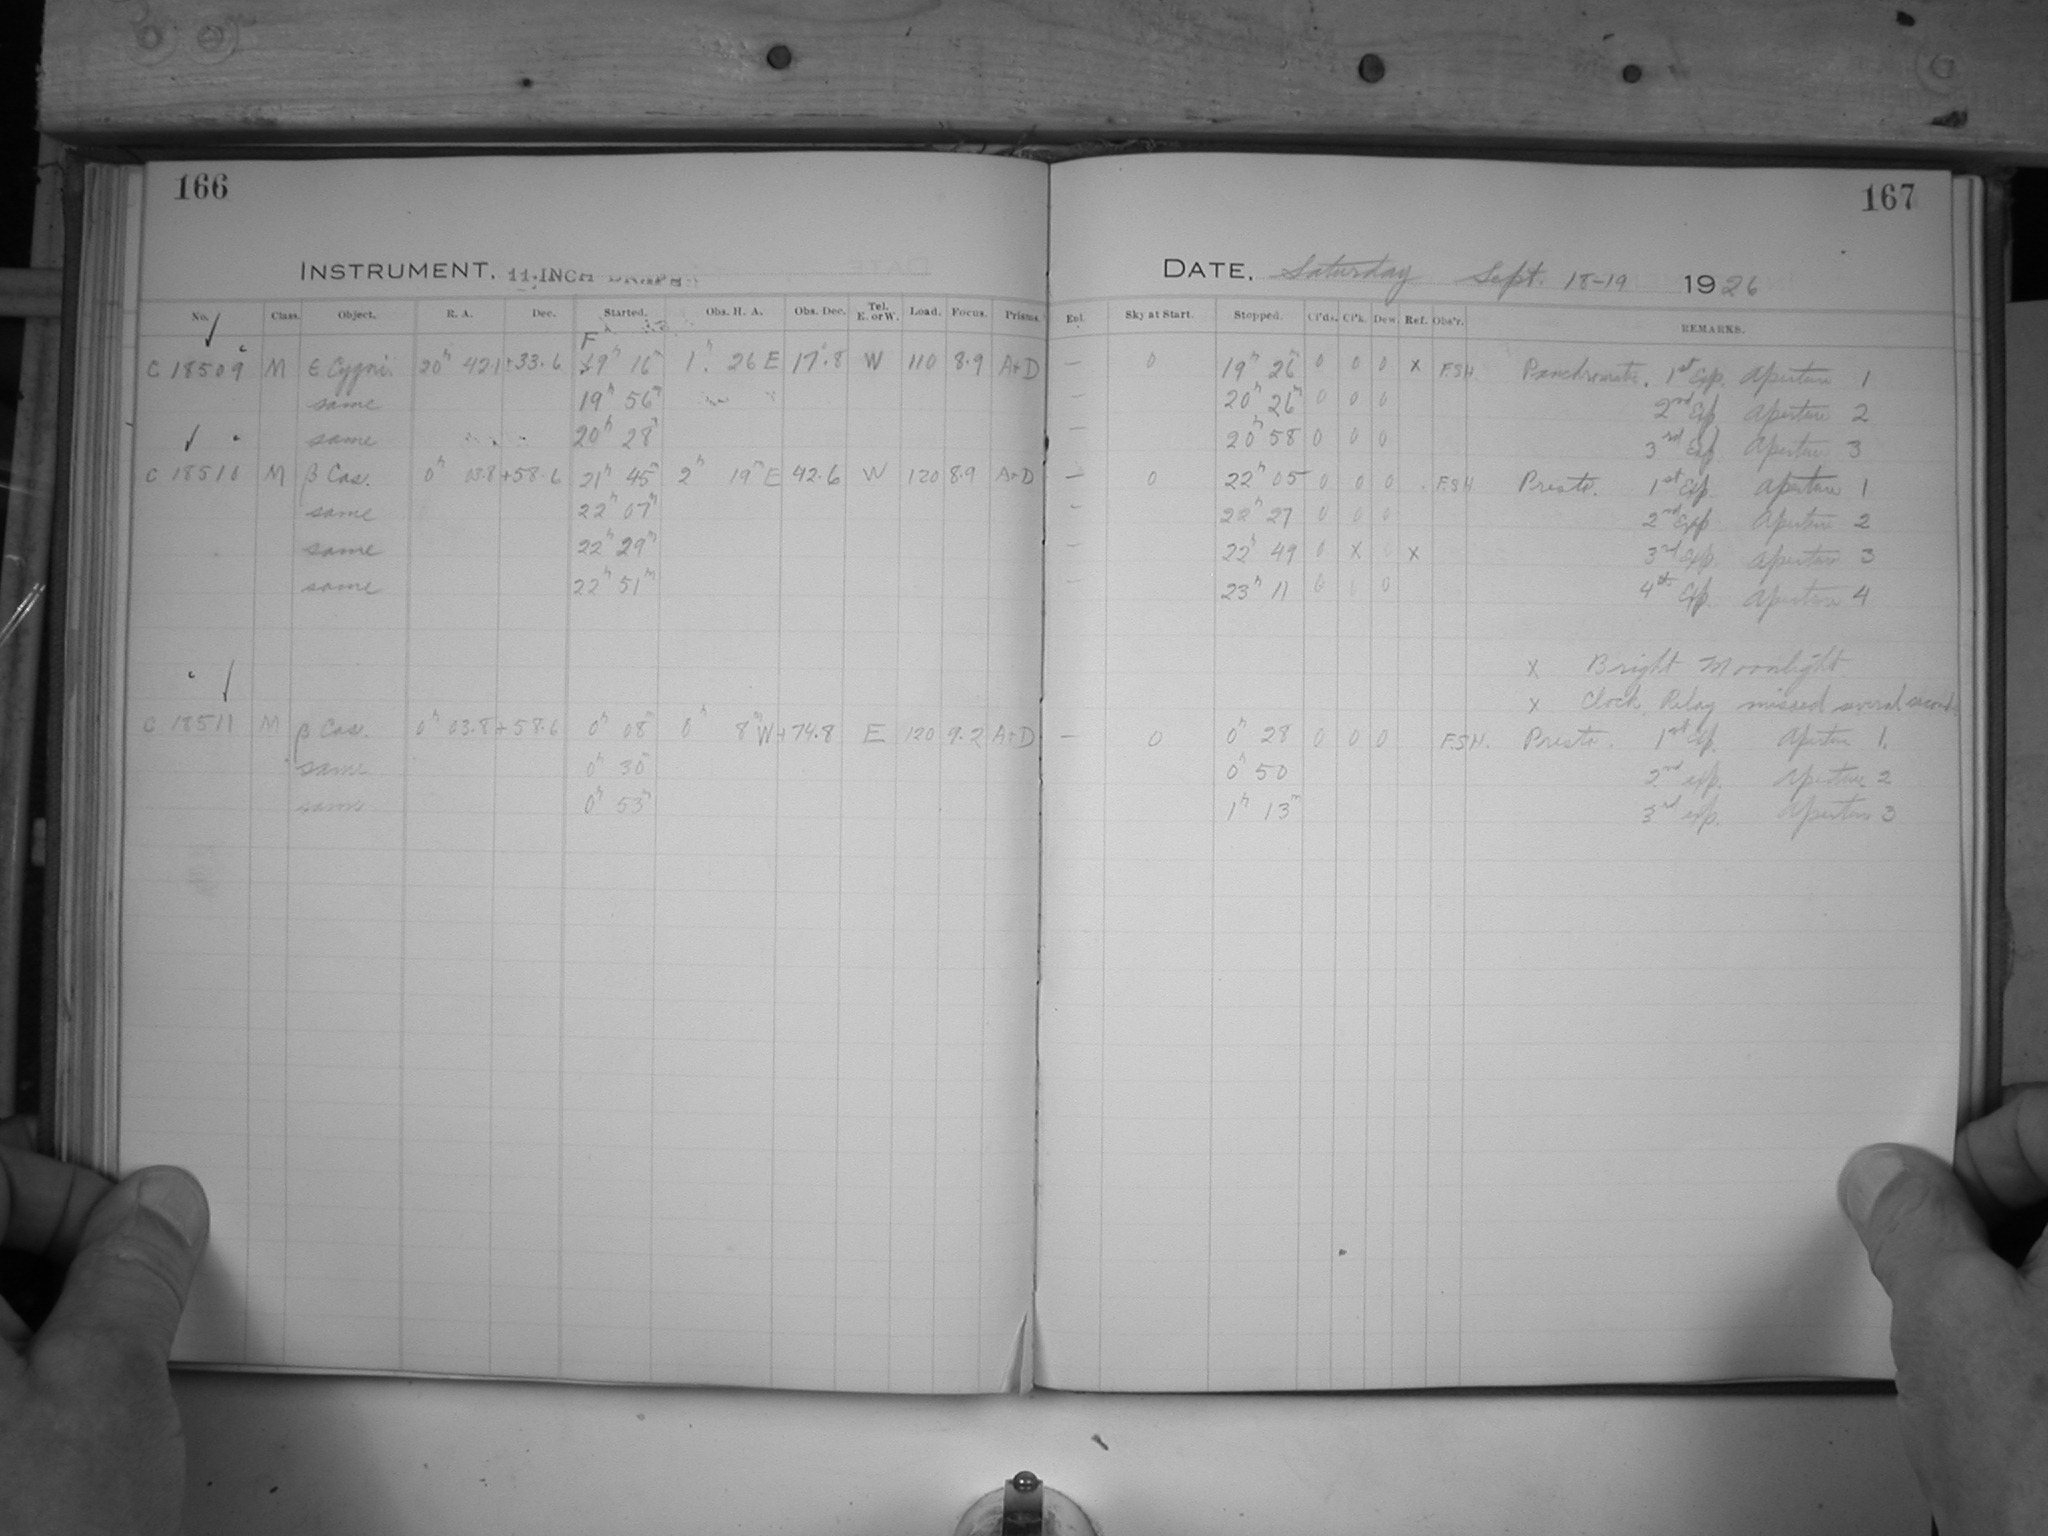 166
INSTRUMENT. 11-INCH DRAPER
No. Class. Object. R. A. Dec. Started. Obs. H. A. Obs. Dec. Tel. E. or W. Load. Focus. Prisms.
F
C 18509 M ε Cygni. 20h 42.1 +33.6 19h 16m 1h 26 E 17.8 W 110 8.9 A+D
same 19h 56m
same 20h 28m
C 18510 M β Cas. 0h 03.8 +58.6 21h 45m 2h 19m E 42.6 W 120 8.9 A+D
same 22h 07m
same 22h 29m
same 22h 51m
C 18511 M β Cas. 0h 03.8 +58.6 0h 08m 0h 8m W +74.8 E 120 9.2 A+D
same 0h 30
same 0h 53m
167
DATE. Saturday Sept. 18-19 1926
Eol. Sky at Start. Stopped. Cl'ds. Cl'k. Dew. Ref. Obs'r. REMARKS.
— 0 19h 26m 0 0 0 x F.S.H. Panchromatic. 1st Exp. Aperture 1
— 20h 26m 0 0 0 2nd Exp Aperture 2
— 20h 58 0 0 0 3rd Exp Aperture 3
— 0 22h 05 0 0 0 F.S.H Presto. 1st Exp. Aperture 1
— 22h 27 0 0 0 2nd Exp Aperture 2
— 22h 49 0 x 0 x 3rd Exp. Aperture 3
23h 11 0 0 4th Exp. Aperture 4
x Bright Moonlight
x Clock Relay missed several seconds
— 0 0h 28 0 0 0 F.S.H. Presto. 1st Exp. Aperture 1.
0h 50 2nd exp. Aperture 2
1h 13m 3rd exp. Aperture 3